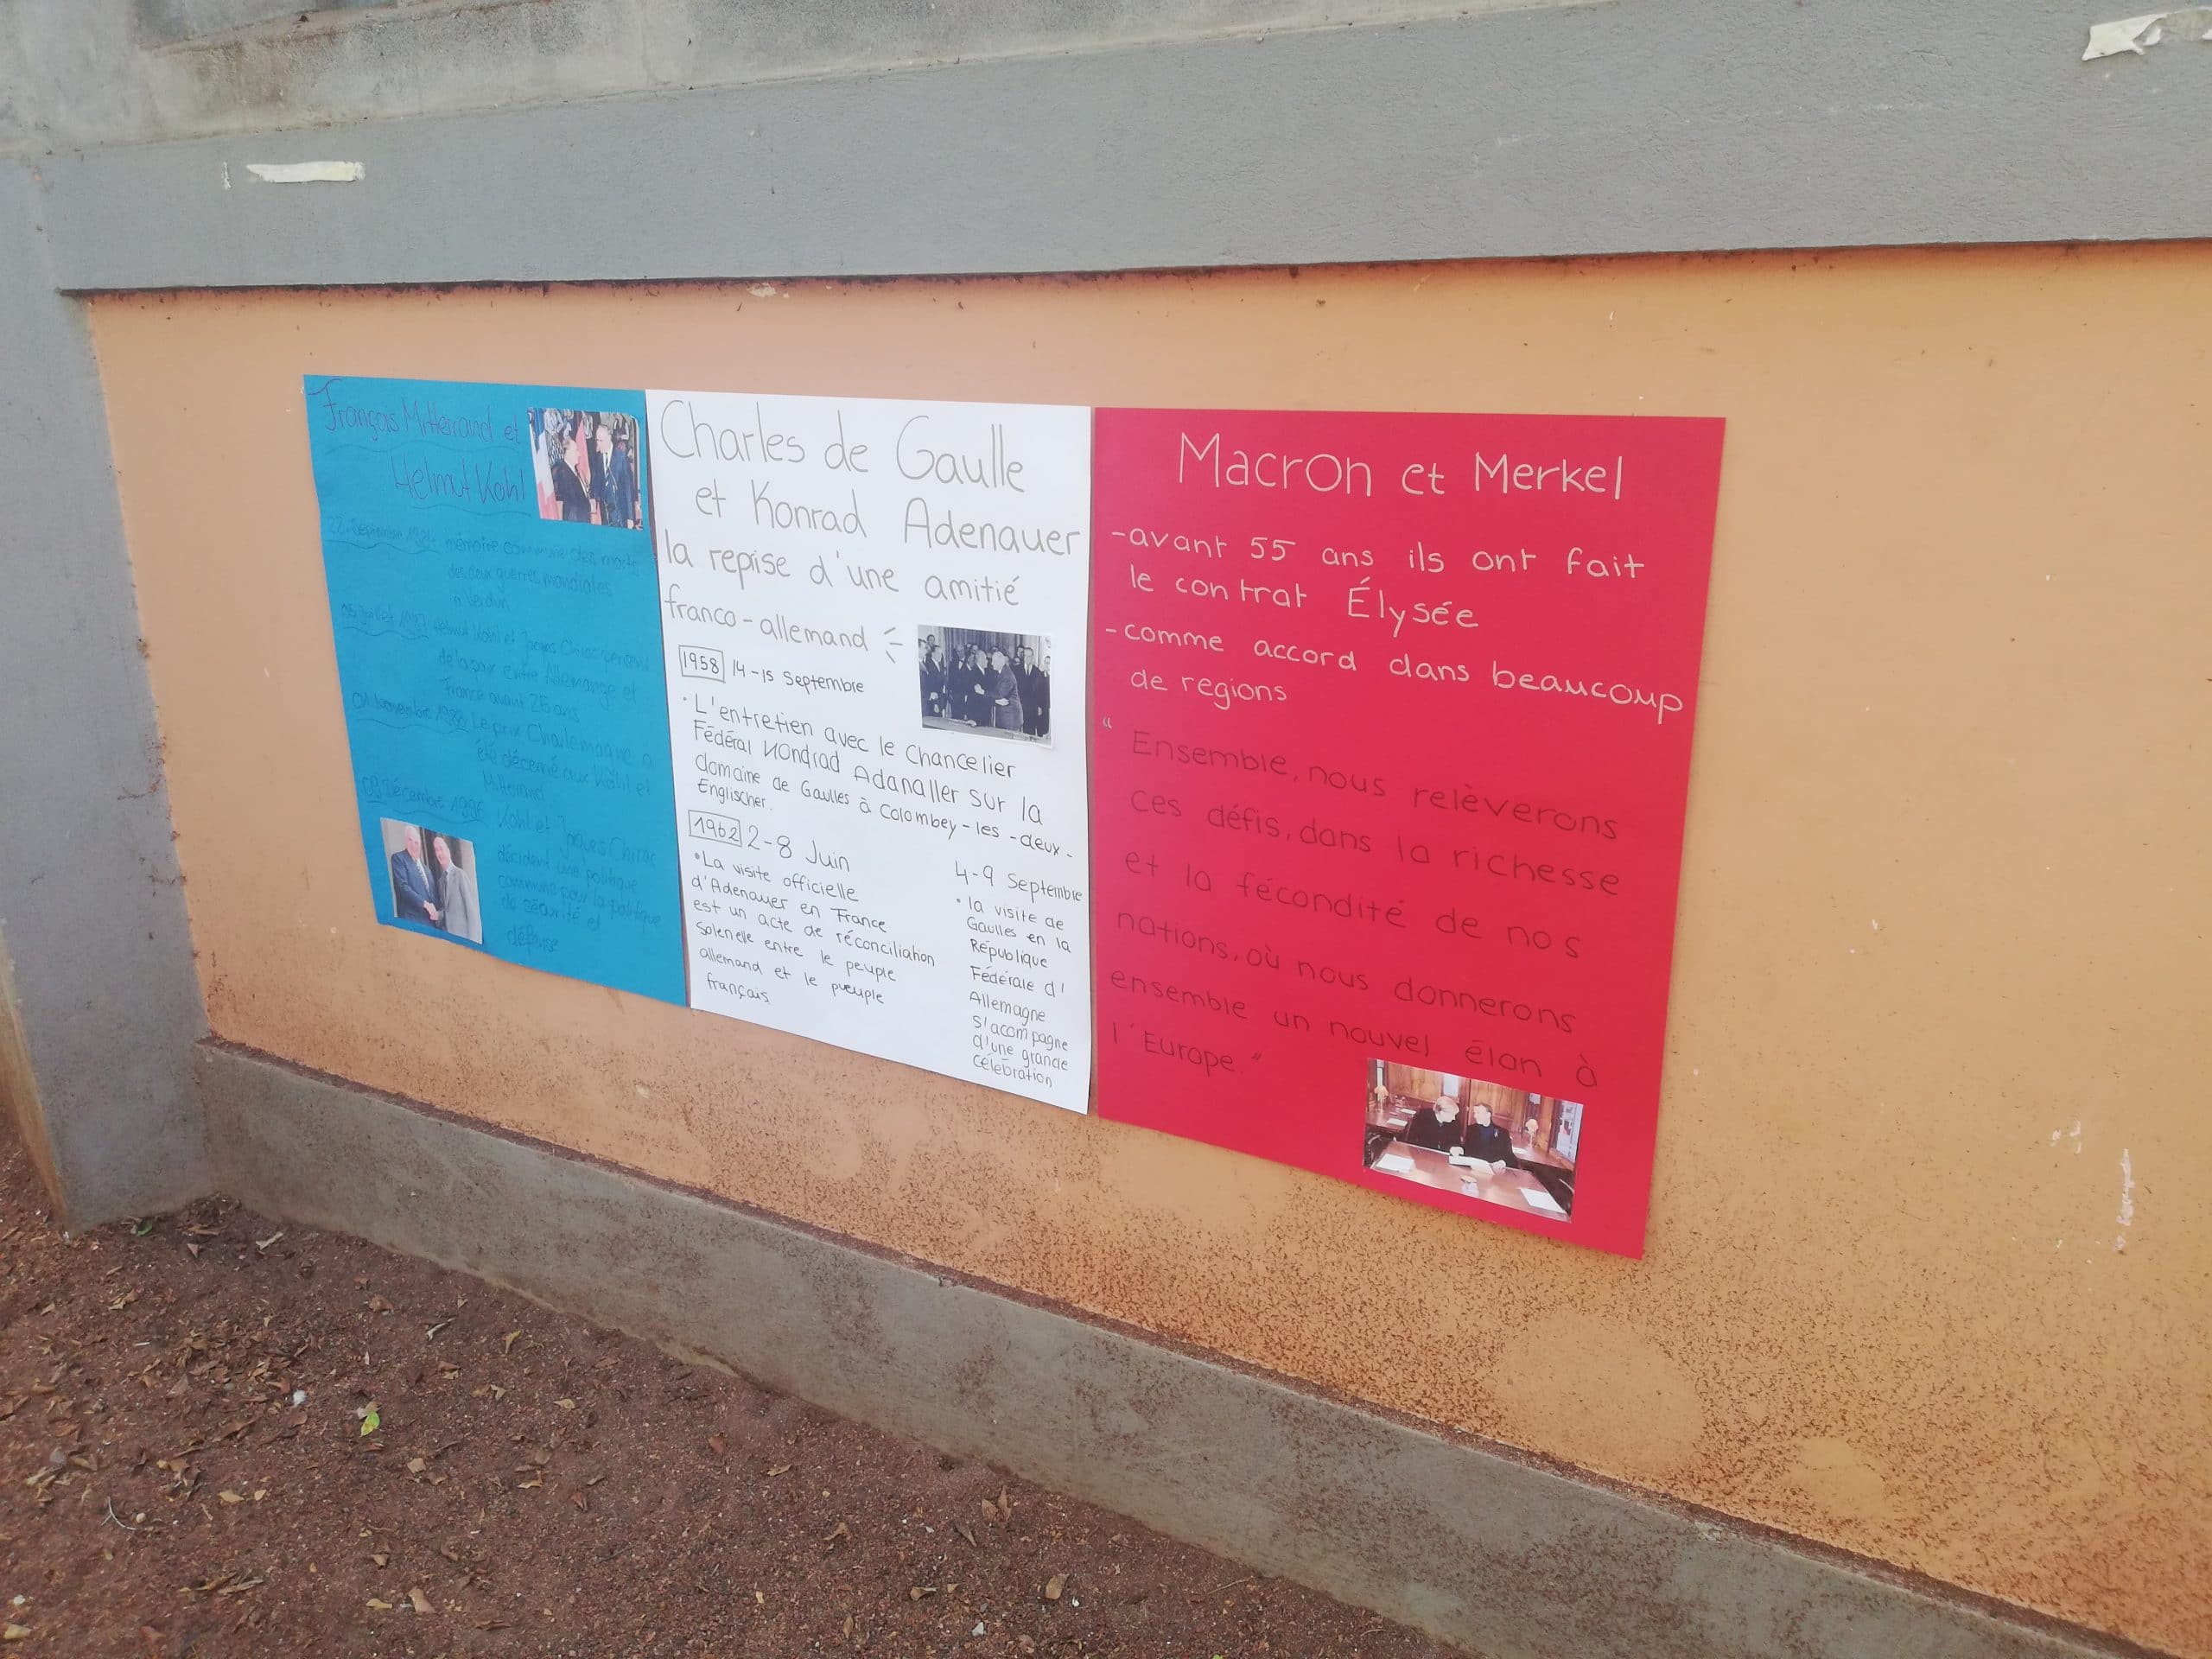 François Mitterand et
Helmut Kohl
22. Septembre 1984 mémoire commune des morts
des deux guerres mondiales
à Verdun
Helmut Kohl et Jaques Chirac
de la paix entre Allemange et
France avant 25 ans
01 Novembre 1988 Le prix Charlemagne a
été décerné aux Kohl et
Mitterand
09 Décembre 1996 Kohl et Jaques Chirac
décident une politique
commune pour la politique
de sécurité et
défense
Charles de Gaulle
et Konrad Adenauer
la repise d'une amitié
franco-allemand
1958 14-15 Septembre
• L'entretien avec le Chancelier
Fédéral Kondrad Adanaller sur la
domaine de Gaulles à Colombey-les-deux-
Englischer.
1962 2-8 Juin
• La visite officielle
d'Adenauer en France
est un acte de réconciliation
solenelle entre le peuple
allemand et le peuple
français
4-9 Septembre
• la visite de
Gaulles en la
République
Fédérale d'
Allemagne
s'acompagne
d'une grande
célébration
Macron et Merkel
-avant 55 ans ils ont fait
le contrat Élysée
-comme accord dans beaucoup
de regions
"Ensemble, nous relèverons
ces défis, dans la richesse
et la fécondité de nos
nations, où nous donnerons
ensemble un nouvel élan à
l'Europe."